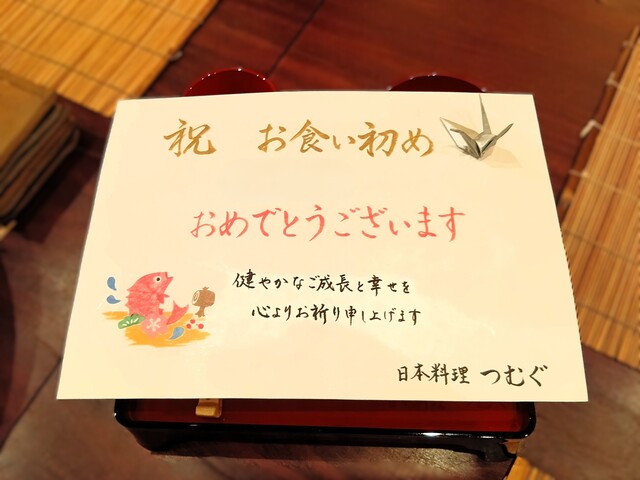 祝 お食い初め
おめでとうございます
健やかなご成長と幸せを
心よりお祈り申し上げます
日本料理 つむぐ